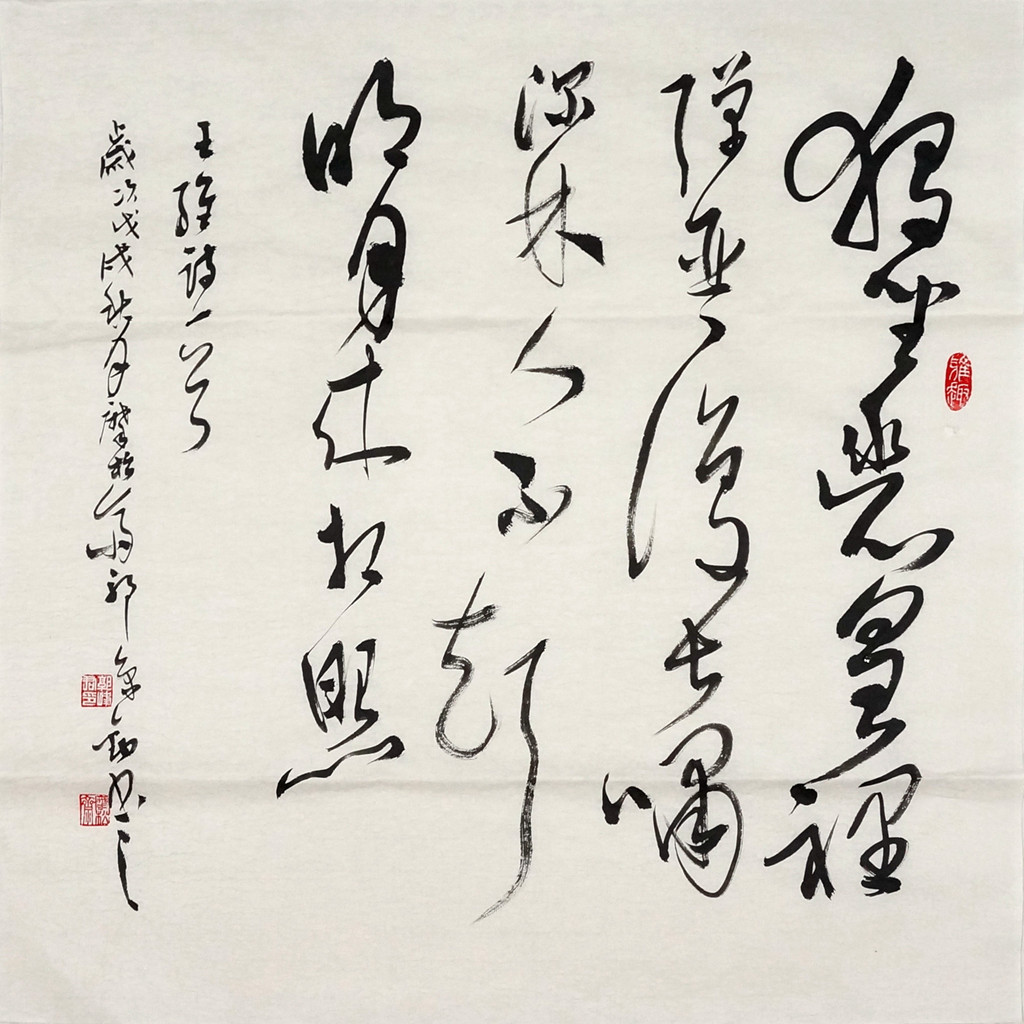 獨坐幽篁裡
彈琴復長嘯
深林人不知
明月來相照
王維詩一首
歲次戊戌秋月
雅趣